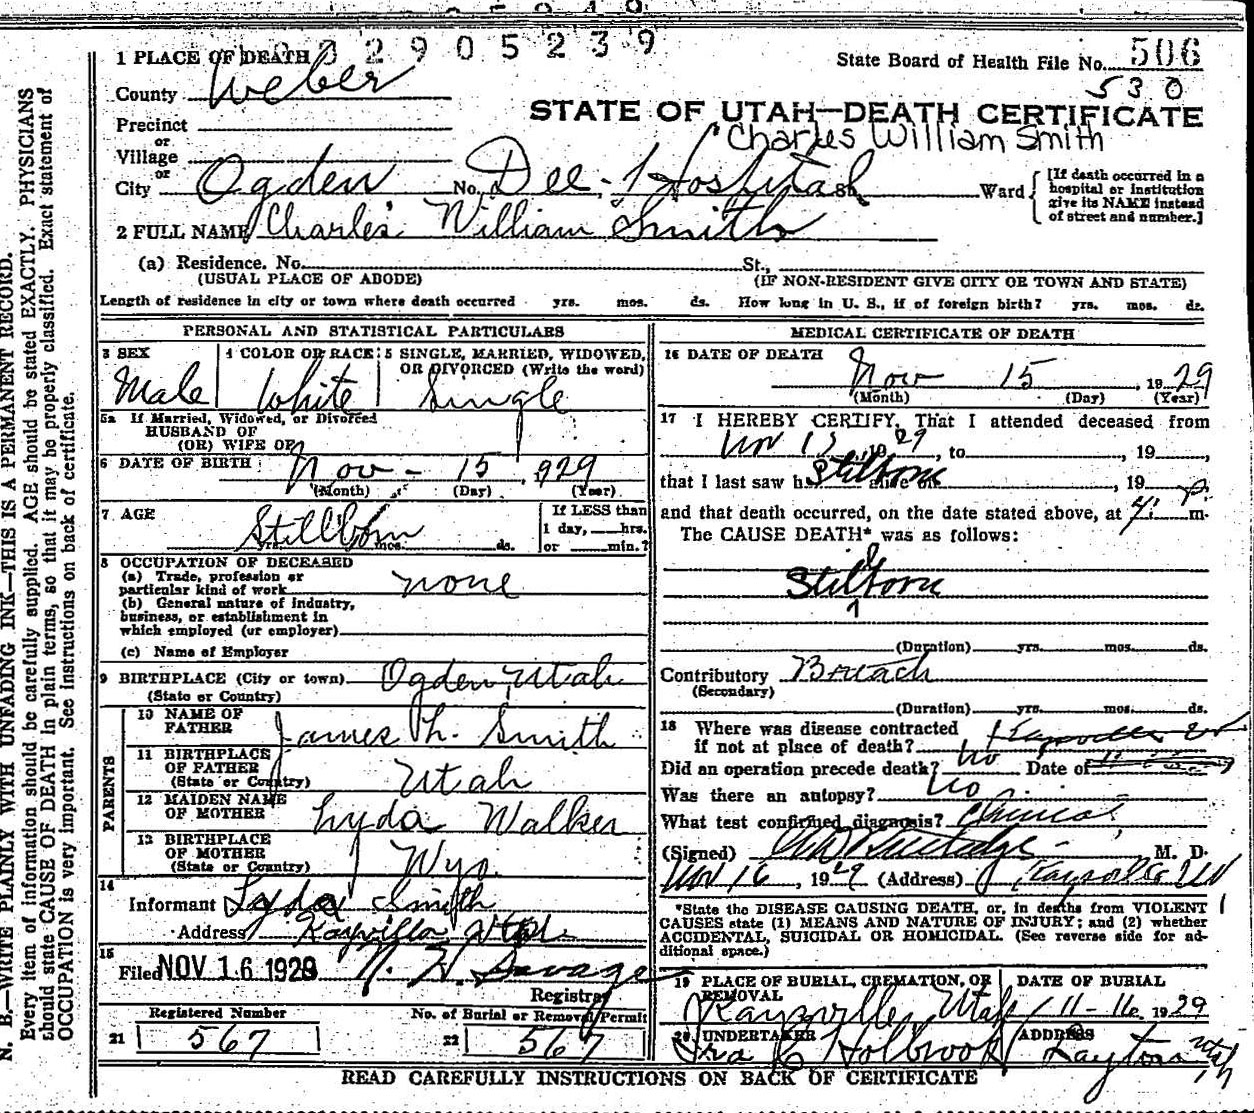 2905239
1 PLACE OF DEATH
State Board of Health File No. 506
530
County Weber
STATE OF UTAH—DEATH CERTIFICATE
Precinct
Charles William Smith
or
Village
or
City Ogden No. Dee-Hospital St. Ward
[If death occurred in a hospital or institution give its NAME instead of street and number.]
2 FULL NAME Charles William Smith
(a) Residence. No. St.,
(USUAL PLACE OF ABODE) (IF NON-RESIDENT GIVE CITY OR TOWN AND STATE)
Length of residence in city or town where death occurred yrs. mos. ds. How long in U. S., if of foreign birth? yrs. mos. ds.
PERSONAL AND STATISTICAL PARTICULARS
3 SEX 4 COLOR OR RACE 5 SINGLE, MARRIED, WIDOWED,
OR DIVORCED (Write the word)
Male White Single
5a If Married, Widowed, or Divorced
HUSBAND OF
(OR) WIFE OF
6 DATE OF BIRTH Nov - 15, 929
(Month) (Day) (Year)
7 AGE Stillborn
yrs. mos. ds.
If LESS than
1 day, hrs.
or min.?
8 OCCUPATION OF DECEASED
(a) Trade, profession or
particular kind of work none
(b) General nature of industry,
business, or establishment in
which employed (or employer)
(c) Name of Employer
9 BIRTHPLACE (City or town) Ogden, Utah
(State or Country)
PARENTS
10 NAME OF
FATHER James H. Smith
11 BIRTHPLACE
OF FATHER
(State or Country) Utah
12 MAIDEN NAME
OF MOTHER Lyda Walker
13 BIRTHPLACE
OF MOTHER
(State or Country) Wyo.
14
Informant Lyda Smith
Address Kaysville Utah
15
Filed NOV 16 1929 N. H. Savage
Registrar
Registered Number No. of Burial or Removal Permit
21 567 22 567
MEDICAL CERTIFICATE OF DEATH
16 DATE OF DEATH
Nov 15, 1929
(Month) (Day) (Year)
17 I HEREBY CERTIFY, That I attended deceased from
Nov 15, 1929, to , 19 ,
that I last saw h alive on Stilborn , 19
and that death occurred, on the date stated above, at p m.
The CAUSE DEATH* was as follows:
Stilborn
(Duration) yrs. mos. ds.
Contributory Breach
(Secondary)
(Duration) yrs. mos. ds.
18 Where was disease contracted
if not at place of death? Kaysville
Did an operation precede death? No Date of
Was there an autopsy? No
What test confirmed diagnosis? Clinical
(Signed) Rutledge M. D.
Nov 16, 1929 (Address) Kaysville Ut
*State the DISEASE CAUSING DEATH, or, in deaths from VIOLENT
CAUSES state (1) MEANS AND NATURE OF INJURY; and (2) whether
ACCIDENTAL, SUICIDAL OR HOMICIDAL. (See reverse side for ad-
ditional space.)
19 PLACE OF BURIAL, CREMATION, OR REMOVAL DATE OF BURIAL
Kaysville, Utah 11-16 1929
20 UNDERTAKER ADDRESS
Ira C Holbrook Layton Utah
READ CAREFULLY INSTRUCTIONS ON BACK OF CERTIFICATE
N. B.—WRITE PLAINLY WITH UNFADING INK—THIS IS A PERMANENT RECORD.
Every item of information should be carefully supplied. AGE should be stated EXACTLY. PHYSICIANS
should state CAUSE OF DEATH in plain terms, so that it may be properly classified. Exact statement of
OCCUPATION is very important. See instructions on back of certificate.